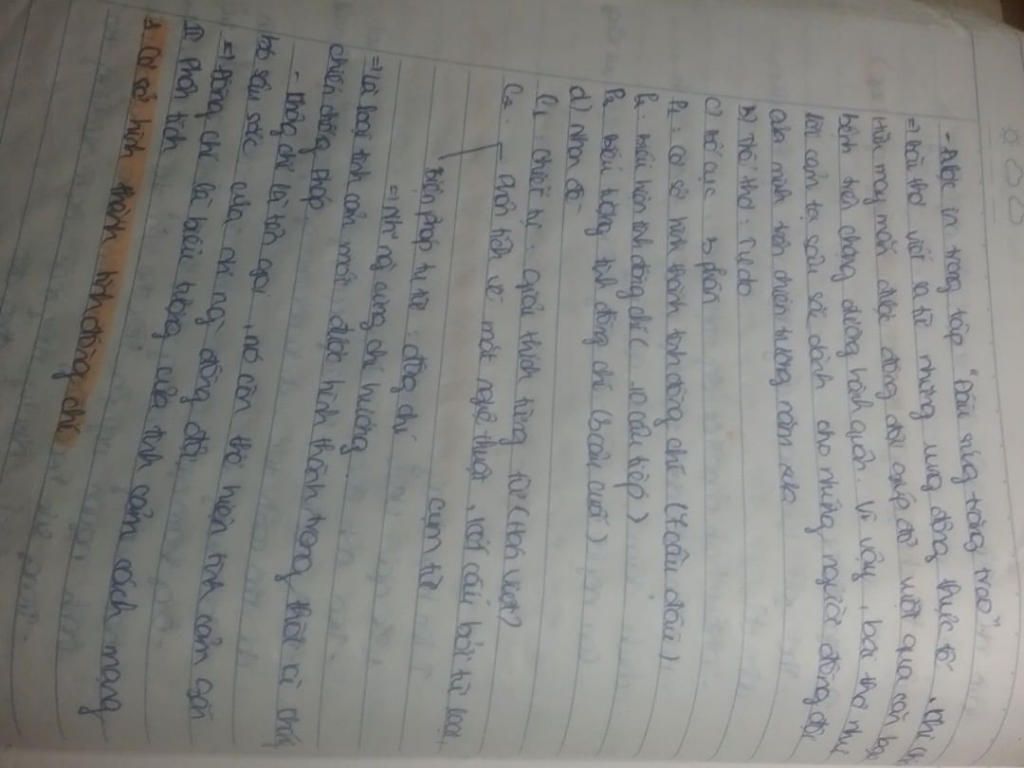 - Được in trong tập "Đầu súng trăng treo"
=> Bài thơ viết ra từ những rung động thực tế, khi
Hữu may mắn được đồng đội giúp đỡ vượt qua cơn
bệnh trên chặng đường hành quân. Vì vậy, bài thơ như
lời cảm tạ sâu sắc dành cho những người đồng đội
của mình trên chiến trường năm xưa
b) Thể thơ: Tự do
c) Bố cục 3 phần
P1: cơ sở hình thành tình đồng chí (7 câu đầu)
P2: biểu hiện tình đồng chí (10 câu tiếp)
P3: biểu tượng tình đồng chí (3 câu cuối)
d) Nhan đề
C1: chiết tự - giải thích từng từ (Hán Việt)
C2: - phân tích về mặt nghệ thuật, kết cấu bởi từ loại,
biện pháp tu từ đồng chí cụm từ
=> những người cùng chí hướng
=> là loại tình cảm mới được hình thành trong thời kì
chiến chống Pháp
- Đồng chí là tên gọi, nó còn thể hiện tình cảm gắn
bó sâu sắc của những đồng đội
=> Đồng chí là biểu tượng của tình cảm cách mạng
II Phân tích
1. Cơ sở hình thành tình đồng chí